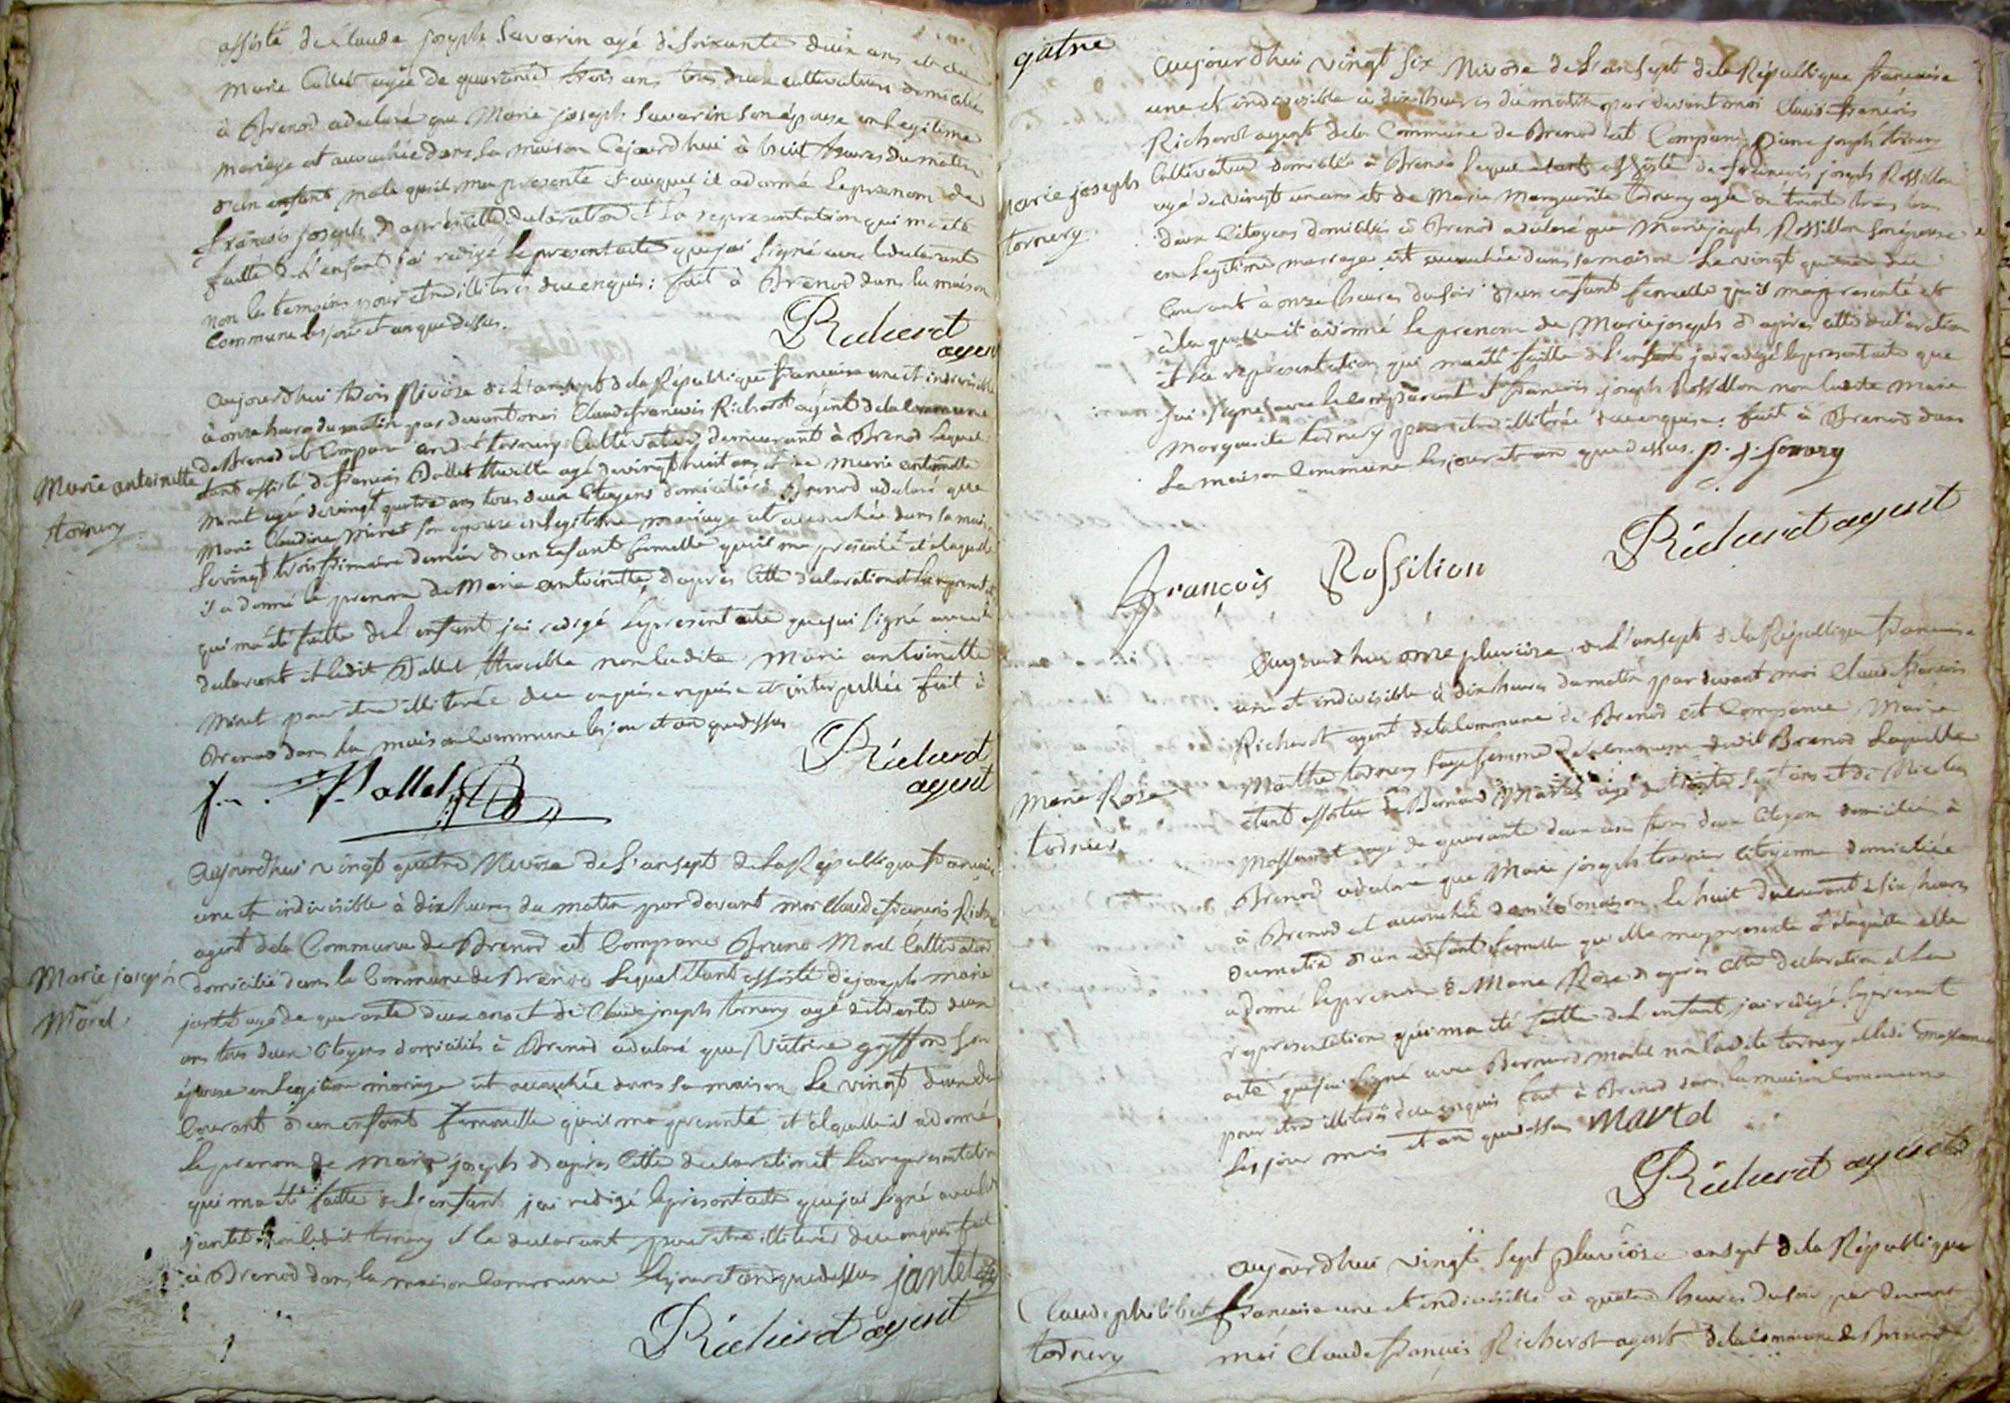 assisté de Claude joseph Savarin agé de soixante deux ans et de
Marie Collet agée de quarante trois ans tous deux cultivateurs domiciliés
à Brenod a declaré que Marie joseph Savarin son épouse en legitime
mariage est accouchée dans sa maison Cejourdhui à huit heures du matin
d'un enfant male qu'il ma presenté et auquel il a donné le prenom de
François joseph d'après cette declaration et la representation qui ma été
faitte de l'enfant j'ai redigé le present acte que j'ai signé avec le declarant
non les temoins pour etre illiterés de ce enquis : fait à Brenod dans la maison
Commune les jour et an que dessus.
Richerot
agent
Marie antoinette
tornery
aujourdhui trois Nivôse de l'an sept de la République francaise une et indivisible
à onze heures du matin par devant moi Claude francois Richerot agent de la commune
de Brenod est Comparu andré tornery Cultivateur demeurant à Brenod lequel
étant assisté de francois Ballet agé de vingt huit ans et de Marie antoinette
Minet agé de vingt quatre ans tous deux Citoyens domiciliés à Brenod a declaré que
Marie Claudine Minet son epouse en legitime mariage est accouchée dans sa maison
le vingt trois frimaire dernier d'un enfant femelle qu'il ma presenté et à laquelle
il a donné le prenom de Marie antoinette, d'après cette declaration et la represent
qui ma été faitte de l'enfant j'ai redigé le present acte que j'ai signé avec le
declarant et ledit Ballet non ladite Marie antoinette
Minet pour etre illiterée de ce enquise requise et interpellée fait à
Brenod dans la maison Commune les jour et an que dessus
Richerot
agent
Ballet
Marie joseph
Morel
Aujourdhui vingt quatre Nivôse de l'an sept de la République francaise
une et indivisible à dix heures du matin par devant moi Claude francois Richerot
agent de la Commune de Brenod est Comparu Bruno Morel Cultivateur
domicilié dans la Commune de Brenod lequel étant assisté de joseph marie
jantet agé de quarante deux ans et de Claude joseph tornery agé de trente deux
ans tous deux Citoyens domiciliés à Brenod a declaré que Victoire goyffon son
épouse en legitime mariage est accouchée dans sa maison le vingt deux du
Courant d'un enfant femelle qu'il ma presenté et à laquelle il a donné
le prenom de Marie joseph d'après cette declaration et la representation
qui ma été faitte de l'enfant j'ai redigé le present acte que j'ai signé avec ledit
jantet non ledit tornery et le declarant pour etre illiterés de ce enquis fait
à Brenod dans la maison Commune les jour et an que dessus jantet
Richerot agent
quatre
Marie joseph
tornery
Aujourdhui vingt six Nivose de l'an sept de la République francaise
une et indivisible à dix heures du matin par devant moi Claude francois
Richerot agent de la Commune de Brenod est Comparu Pierre joseph tornery
Cultivateur domicilié à Brenod lequel étant assisté de francois joseph Rossillon
agé de vingt un ans et de Marie Marguerite tornery agée de trente trois ans
deux Citoyens domiciliés à Brenod a declaré que Marie joseph Rossillon son épouse
en legitime mariage est accouchée dans sa maison le vingt quatre du
Courant à onze heures du soir d'un enfant femelle qu'il ma presenté et
à la quelle il a donné le prenom de Marie joseph d'après cette declaration
et la representation qui ma été faitte de l'enfant j'ai redigé le present acte que
j'ai signé avec le comparant et francois joseph Rossillon non ladite Marie
Marguerite tornery pour etre illiterée de ce enquise : fait à Brenod dans
la maison Commune les jour et an que dessus. p. j. tornery
Richerot agent
François Rossilion
Marie Rose
tornier
Aujourdhui onze pluviôse de l'an sept de la République francaise
une et indivisible à dix heures du matin par devant moi Claude francois
Richerot agent de la Commune de Brenod est Comparue Marie
Marthe tornery sage femme de la commune dudit Brenod laquelle
étant assistée de Bernard Martel agé de trente sept ans et de Nicolas
Massonnet agé de quarante deux ans tous deux Citoyens domiciliés à
Brenod a declaré que Marie joseph tornier Citoyenne domiciliée
à Brenod est accouchée dans sa maison le huit du courant à six heures
du matin d'un enfant femelle qu'elle ma presenté et à laquelle elle
a donné le prenom de Marie Rose d'après cette declaration et la
representation qui ma été faitte de l'enfant j'ai redigé le present
acte que j'ai signé avec Bernard Martel non ladite tornery et ledit Massonnet
pour etre illiterés de ce enquis fait à Brenod dans la maison Commune
les jour mois et an que dessus Martel
Richerot agent
Claude philibert
tornery
aujourdhui vingt sept pluviôse an sept de la République
francaise une et indivisible à quatre heures du soir par devant
moi Claude françois Richerot agent de la Commune de Brenod